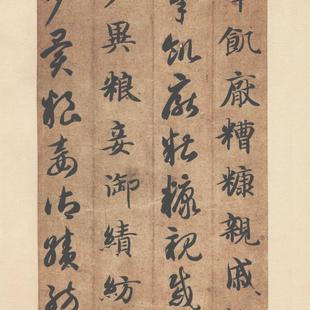 宰飢厭糟糠親戚
宰飢厭糟糠親戚
少異粮妾御績紡
少異粮妾御績紡